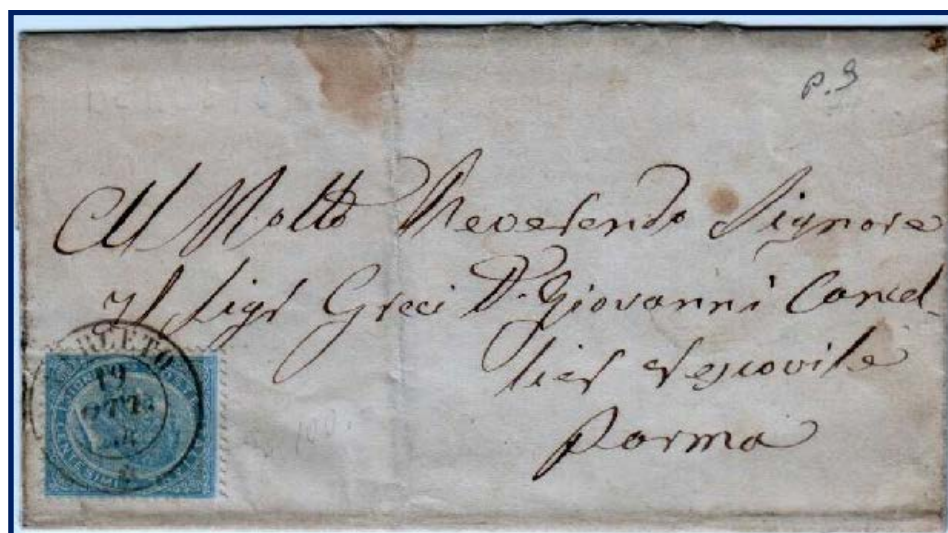 P. S
Al Molto Reverendo Signore
Il Sigr Greci D. Giovanni Cancel-
lier Vescovile
Parma
19
OTT